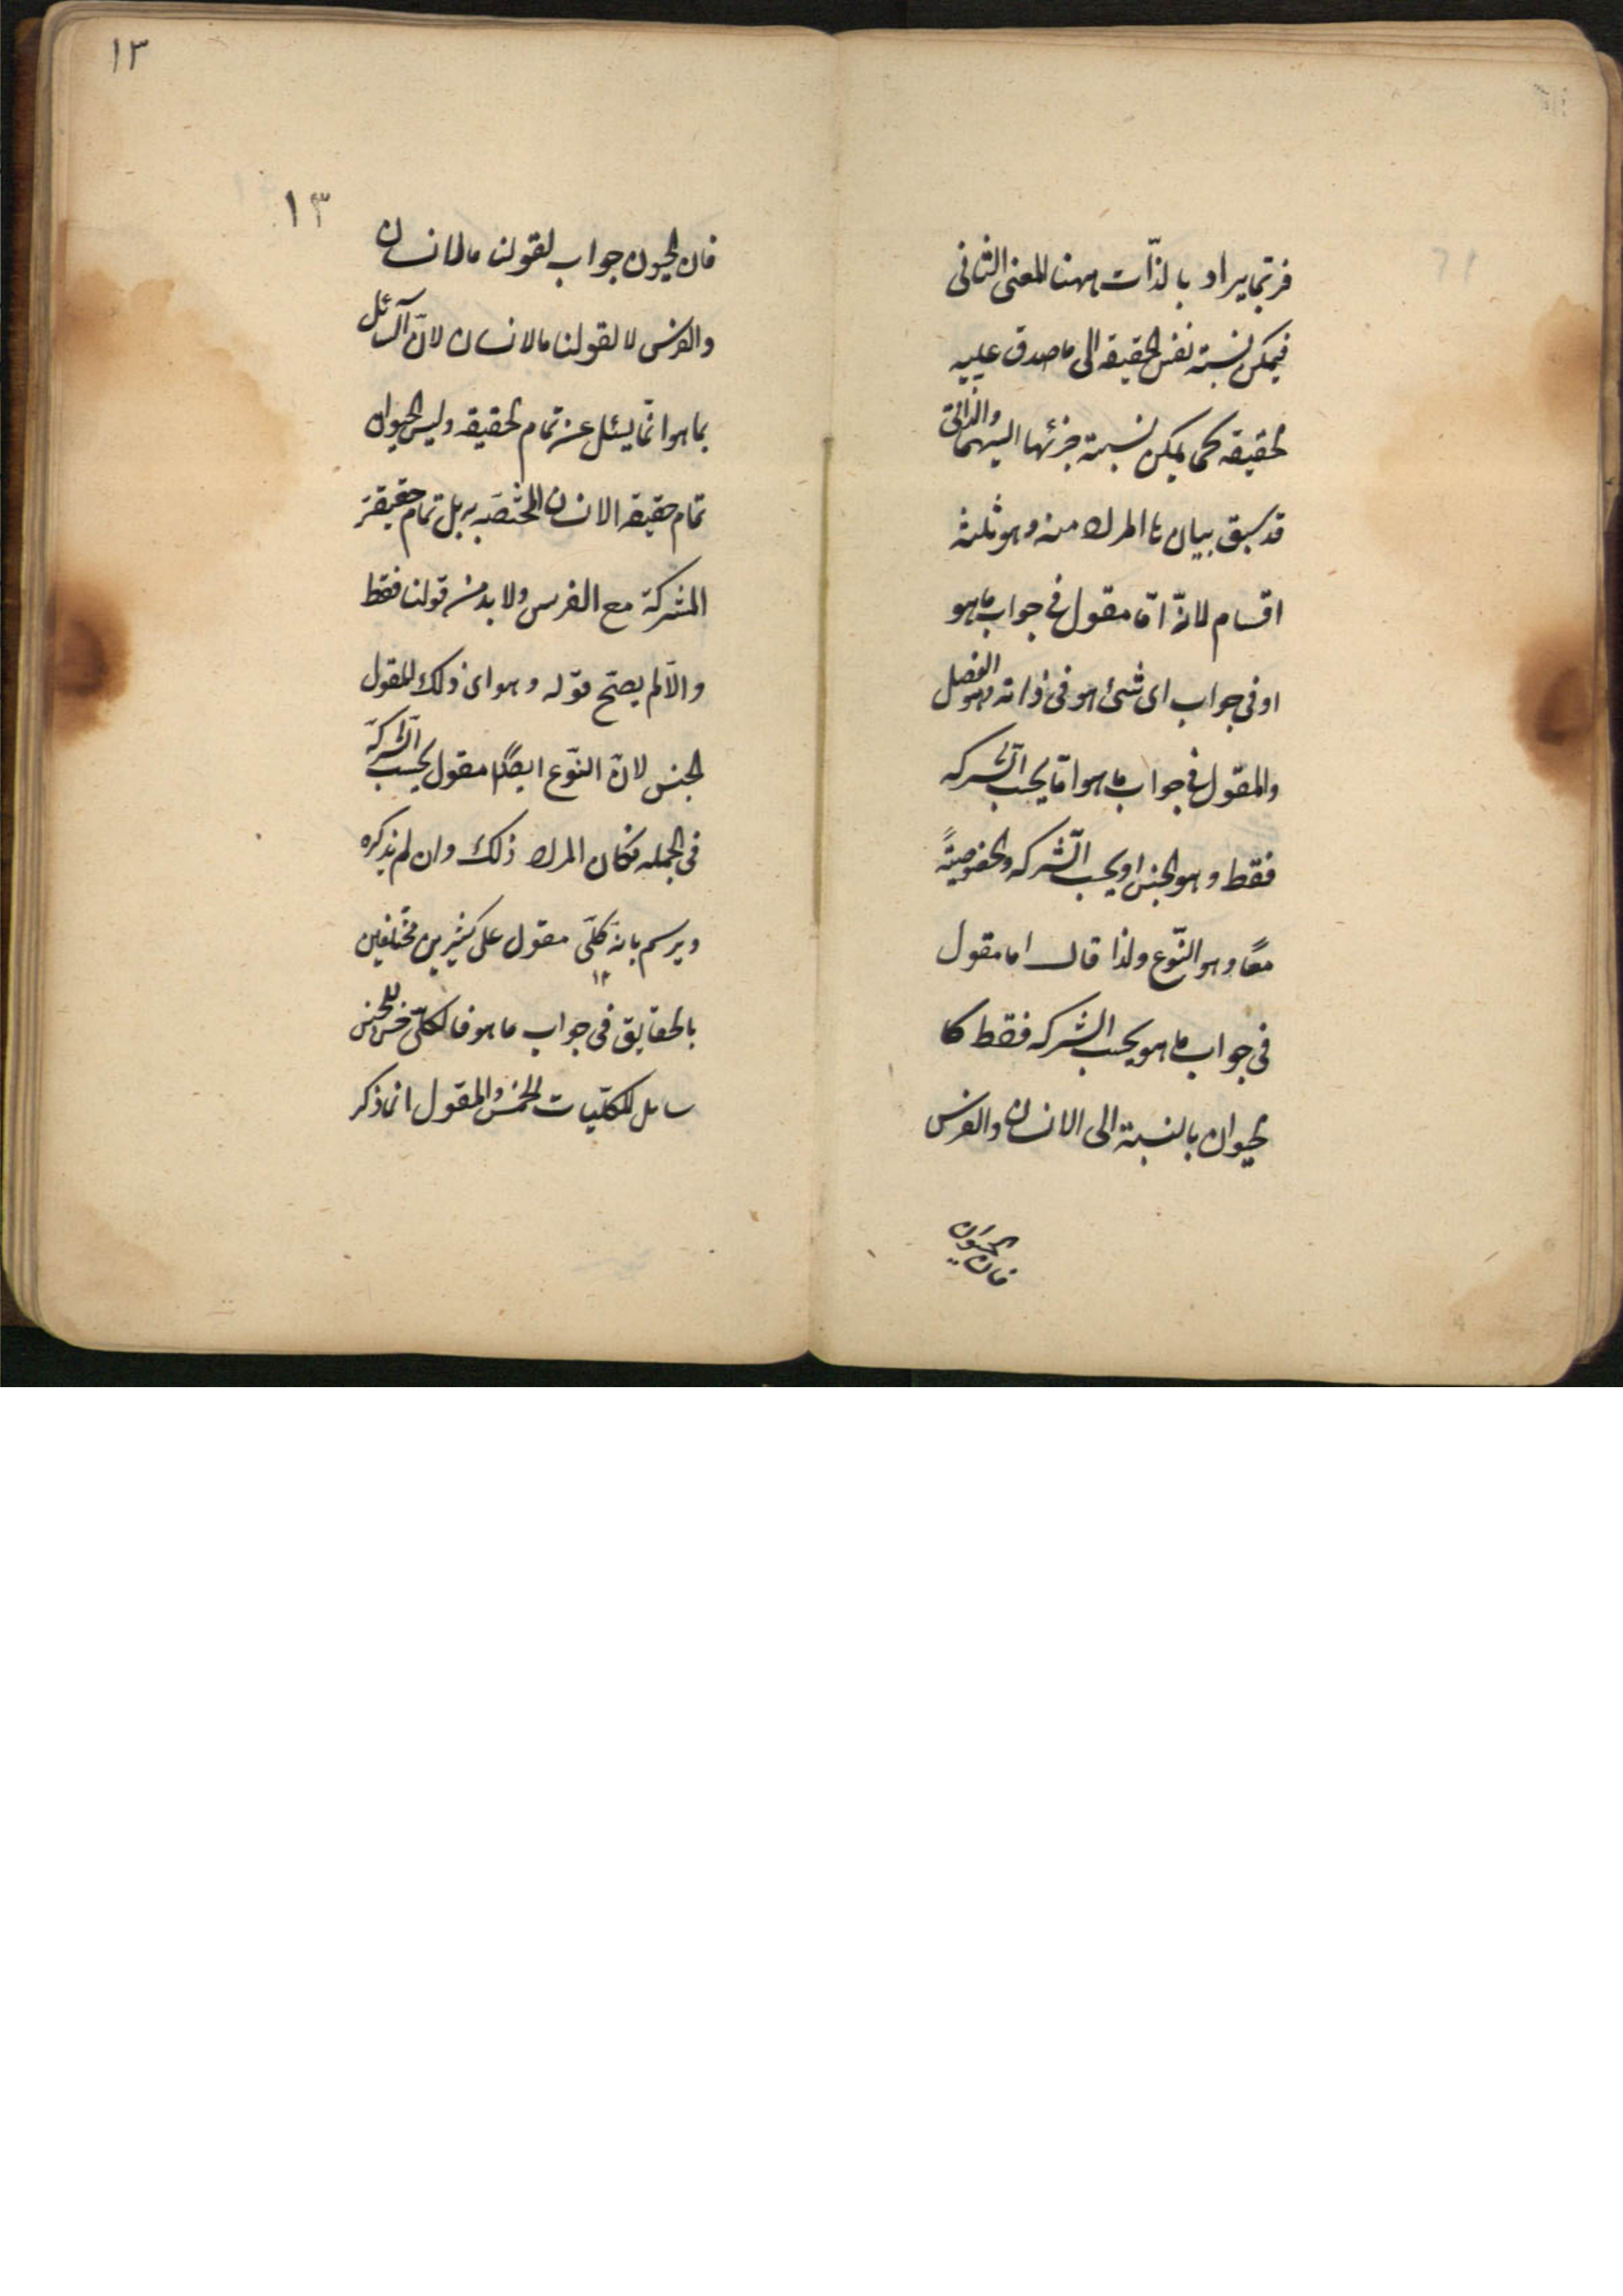 فربما يراد بالذّات ههنا المعنى الثانى
فيمكن نسبة نفس الحقيقه الى ما صدق عليه
الحقيقه كما يمكن نسبة جزئها اليهما والذاتى
قد سبق بيان ما المراد منه وهو ثلثة
اقسام لانّه امّا مقول فى جواب ما هو
او فى جواب اى شئ هو فى ذاته وهو الفصل
والمقول فى جواب ما هو امّا بحسب الشركه
فقط وهو الجنس او بحسب الشّركه والخصوصيّة
معًا وهو النّوع ولذا قال اما مقول
فى جواب ما هو بحسب الشركه فقط كا
لحيوان بالنسبة الى الانسان والفرس
فان الحيوان
١٣
١٣
فان الحيون جواب لقولنا ما الانسان
والفرس لا لقولنا ما الانسان لانّ السّائل
بما هو انّما يسئل عن تمام الحقيقه وليس الحيوان
تمام حقيقه الانسان المختصّه به بل تمام حقيقته
المشركة مع الفرس ولا بد من قولنا فقط
والّا لم يصحّ قوله وهو اى ذلك المقول
الجنس لانّ النّوع ايضًا مقول بحسب الشّركة
فى الجمله فكان المراد ذلك وان لم يذكره
ويرسم بانه كلّى مقول على كثيرين مختلفين
١٢
بالحقايق فى جواب ما هو فالكلّى جنس للجنس
شامل للكلّيات الخمس والمقول انما ذكر